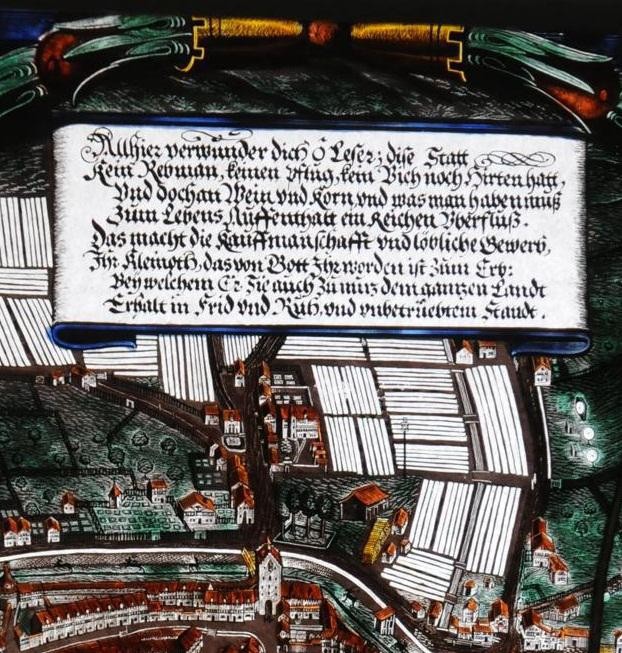 Allhier verwunder dich ô Leser; dise Statt
Kein Rebman, keinen Pflug, kein Vich noch Hirten hatt,
Vnd doch an Wein vnd Korn, vnd was man haben muß
Zum Lebens Auffenthalt ein Reichen Vberfluß.
Das macht die Kauffmanschafft vnd löbliche Gewerb,
Ihr Kleinoth, das von Gott Ihr worden ist zum Erb:
Bey welchem Er Sie auch zu nuz dem gantzen Landt
Erhalt in Frid vnd Ruh, vnd vnbetrüebtem Standt.